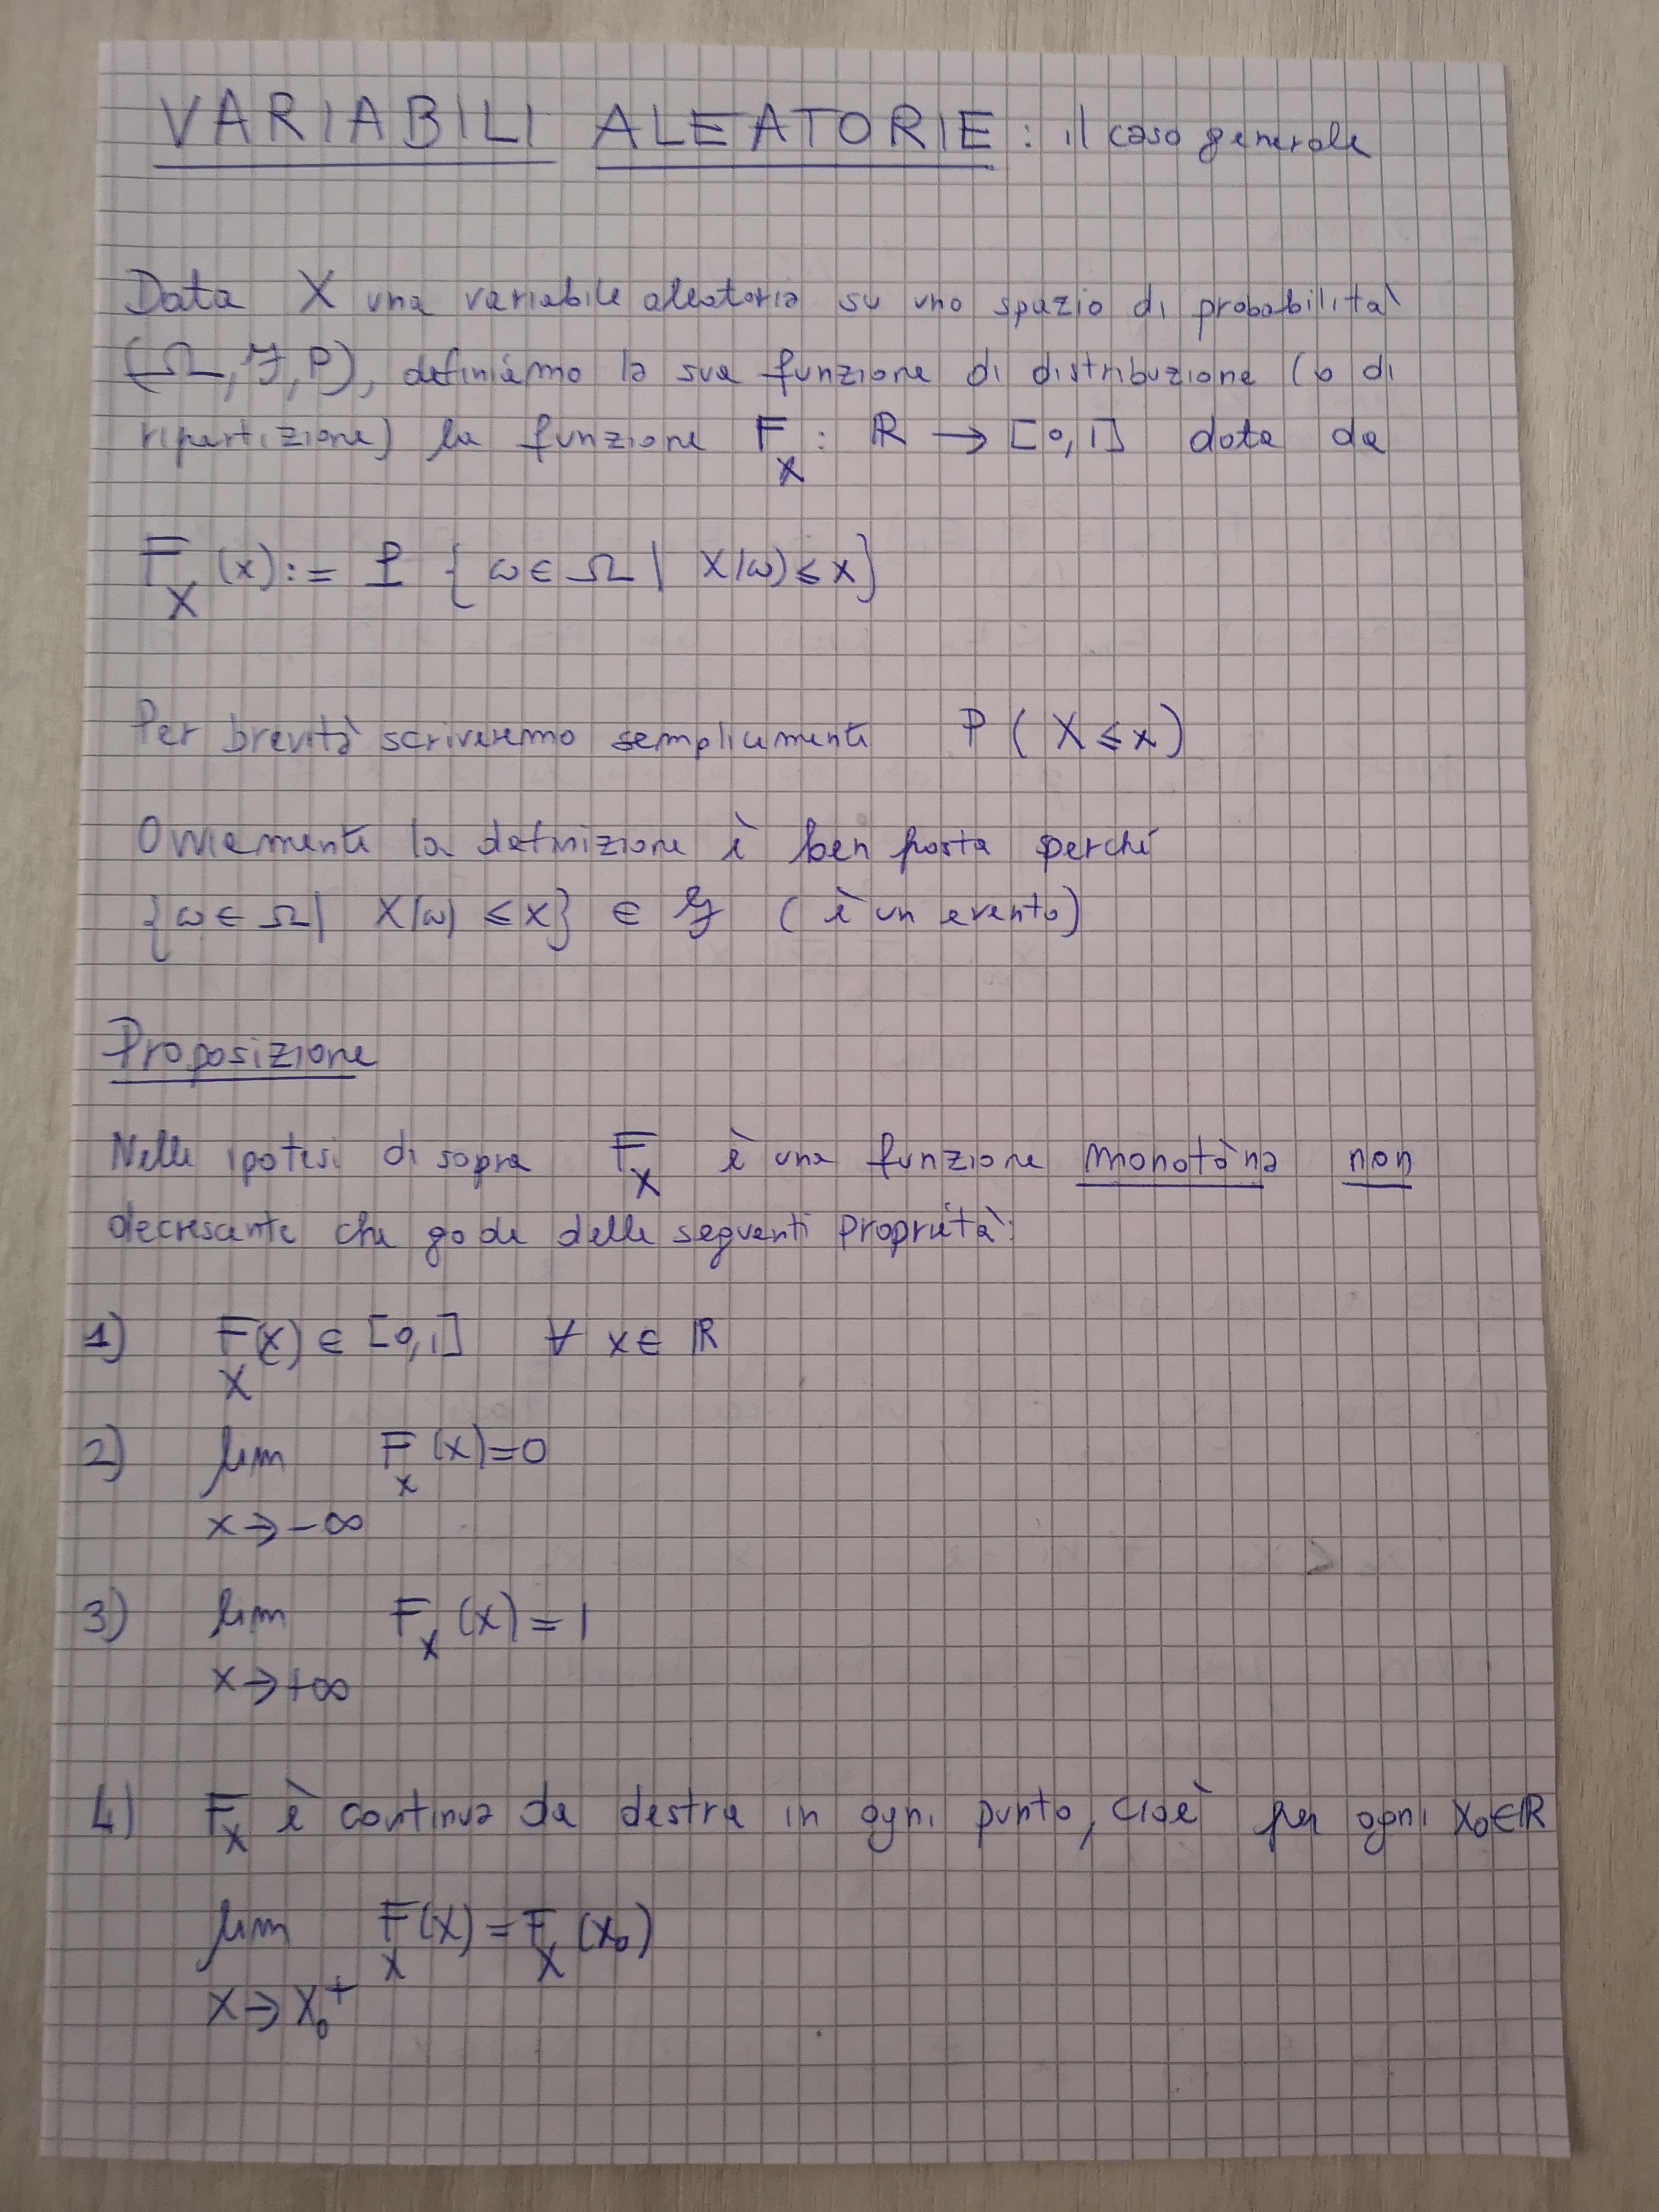 VARIABILI ALEATORIE: il caso generale
Data X una variabile aleatoria su uno spazio di probabilità
(Ω, F, P), definiamo la sua funzione di distribuzione (o di
ripartizione) la funzione F_X : ℝ → [0,1] data da
F_X (x) := P { ω ∈ Ω | X(ω) ≤ x}
Per brevità scriveremo semplicemente P ( X ≤ x )
Ovviamente la definizione è ben posta perché
{ω ∈ Ω | X(ω) ≤ x} ∈ F ( è un evento)
Proposizione
Nelle ipotesi di sopra F_X è una funzione monotòna non
decrescente che gode delle seguenti proprietà:
1) F_X(x) ∈ [0,1] ∀ x ∈ ℝ
2) lim F_X (x) = 0
x → -∞
3) lim F_X (x) = 1
x → +∞
4) F_X è continua da destra in ogni punto, cioè per ogni x₀ ∈ ℝ
lim F_X(x) = F_X (x₀)
x → x₀⁺